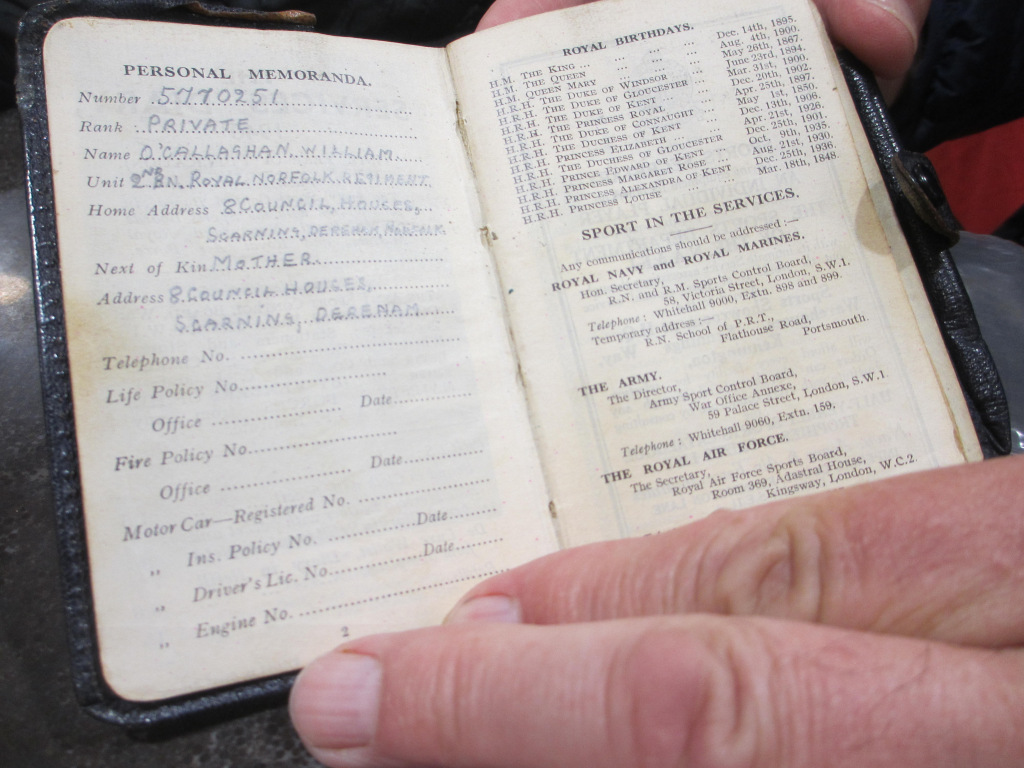 PERSONAL MEMORANDA.
Number 5770251
Rank PRIVATE
Name O'CALLAGHAN. WILLIAM.
Unit 2ND BN. ROYAL NORFOLK REGIMENT.
Home Address 8 COUNCIL HOUSES,
SCARNING, DEREHAM, NORFOLK
Next of Kin MOTHER.
Address 8 COUNCIL HOUSES,
SCARNING, DEREHAM
Telephone No.
Life Policy No. Date
Office
Fire Policy No.
Office Date
Motor Car—Registered No.
„ Ins. Policy No. Date
„ Driver's Lic. No. Date
„ Engine No.
2
ROYAL BIRTHDAYS.
H.M. THE KING ... Dec. 14th, 1895.
H.M. THE QUEEN ... Aug. 4th, 1900.
H.M. QUEEN MARY ... May 26th, 1867.
H.R.H. THE DUKE OF WINDSOR ... June 23rd, 1894.
H.R.H. THE DUKE OF GLOUCESTER ... Mar. 31st, 1900.
H.R.H. THE DUKE OF KENT ... Dec. 20th, 1902.
H.R.H. THE PRINCESS ROYAL ... Apr. 25th, 1897.
H.R.H. THE DUKE OF CONNAUGHT ... May 1st, 1850.
H.R.H. THE DUCHESS OF KENT ... Dec. 13th, 1906.
H.R.H. PRINCESS ELIZABETH ... Apr. 21st, 1926.
H.R.H. THE DUCHESS OF GLOUCESTER Dec. 25th, 1901.
H.R.H. PRINCE EDWARD OF KENT ... Oct. 9th, 1935.
H.R.H. PRINCESS MARGARET ROSE ... Aug. 21st, 1930.
H.R.H. PRINCESS ALEXANDRA OF KENT Dec. 25th, 1936.
H.R.H. PRINCESS LOUISE ... Mar. 18th, 1848.
SPORT IN THE SERVICES.
Any communications should be addressed :—
ROYAL NAVY and ROYAL MARINES.
Hon. Secretary,
R.N. and R.M. Sports Control Board,
58, Victoria Street, London, S.W.1.
Telephone: Whitehall 9000, Extn. 898 and 899.
Temporary address :—
R.N. School of P.R.T.,
Flathouse Road, Portsmouth.
THE ARMY.
The Director,
Army Sport Control Board,
War Office Annexe,
59 Palace Street, London, S.W.1.
Telephone: Whitehall 9060, Extn. 159.
THE ROYAL AIR FORCE.
The Secretary,
Royal Air Force Sports Board,
Room 369, Adastral House,
Kingsway, London, W.C.2.